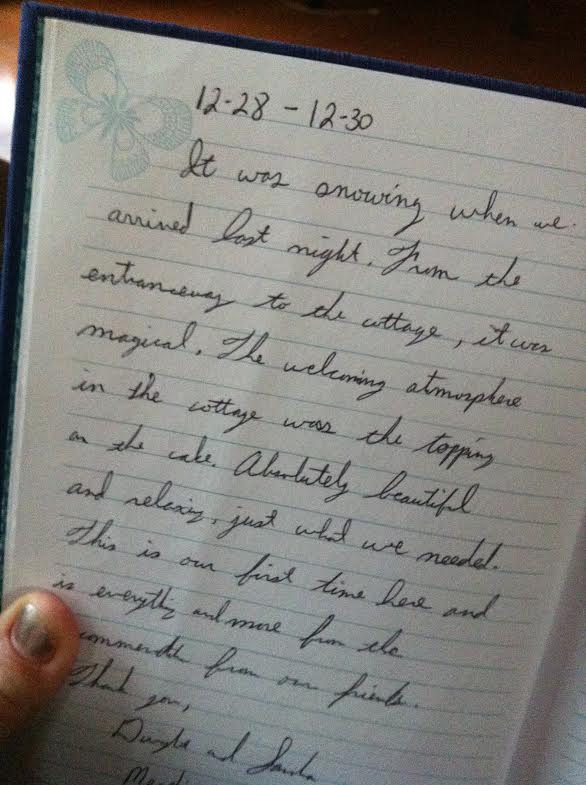 12-28 - 12-30
It was snowing when we
arrived last night. From the
entranceway to the cottage, it was
magical. The welcoming atmosphere
in the cottage was the topping
on the cake. Absolutely beautiful
and relaxing, just what we needed.
This is our first time here and
is everything and more from the
from our friends.
Thank you,
and